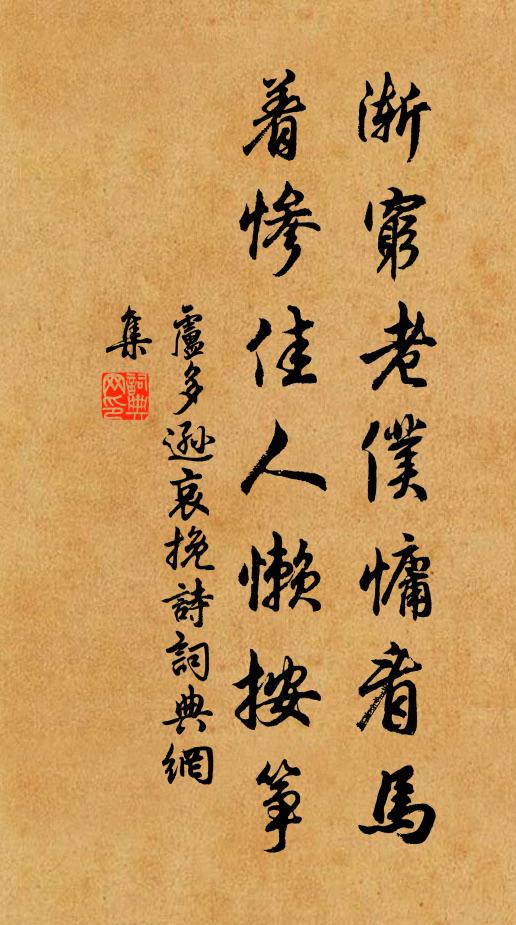 漸窮老僕慵看馬
着慘佳人懶按箏
盧多遜哀挽詩詞典網
集
詞典
网印